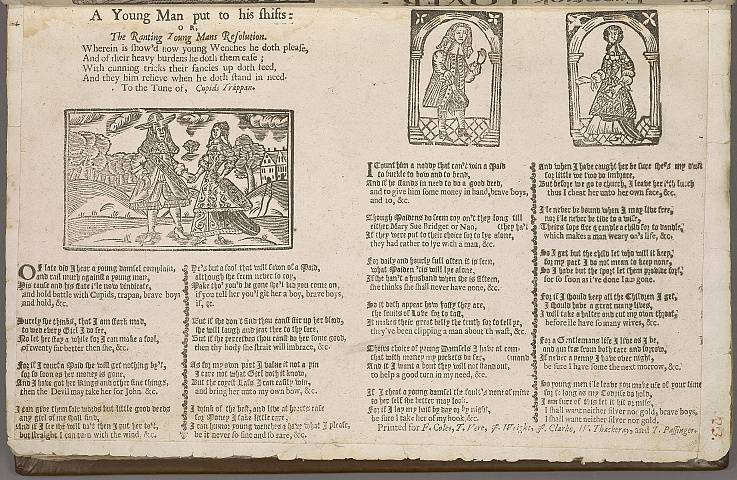 A Young Man put to his shifts:
OR,
The Ranting Young Mans Resolution.
Wherein is show'd now young Wenches he doth please,
And of their heavy burdens he doth them ease;
With cunning tricks their fancies up doth feed,
And they him relieve when he doth stand in need.
To the Tune of, Cupids Trappan.
OF late did I hear a young damsel complain,
and rail much against a young man,
His cause and his state i'le now vindicate,
and hold battle with Cupids, trapan, brave boys
and hold, &c.
Surely she thinks, that I am stark mad,
to wed every Girl I do see,
No let her stay a while for I can make a fool,
of twenty far better then she, &c.
For if I court a Maid she will get nothing by't,
for so soon as her money is gone,
And I have got her Rings and other fine things,
then the Devil may take her for John &c.
I can give them fair words but little good deeds
any girl of me shall find,
And if I see she will do't then I put her to't,
but straight I can turn with the wind, &c.
He's but a fool that will fawn of a Maid,
although she seem never so coy,
Make tho' you'd be gone she'l bid you come on,
if you tell her you'l git her a boy, brave boys,
if, &c.
But if she don't find thou canst stir up her blood,
she will laugh and jeer thee to thy face,
But if she perceives thou canst do her some good,
then thy body she strait will imbrace, &c.
As for my own part I value it not a pin
I care not what Girl doth it know,
But the coyest Lass I can easily win,
and bring her unto my own bow, &c.
I drink of the best, and live at hearts ease
for Money I take little care,
I can humor young wenches & have what I please,
be it never so fine and so rare, &c.
I Count him a noddy that can't win a Maid
to buckle to bow and to bend,
And if he stands in need to do a good deed,
and to give him some money in hand, brave boys,
and to, &c.
Though Maidens do seem coy on't they long till
either Mary Sue Bridget or Nan, (they ha't
If they were put to their choice for to lye alone,
they had rather to lye with a man, &c.
For daily and hourly full often it is seen,
what Maiden 'tis will lye alone,
If she han't a husband when she is fifteen,
she thinks she shall never have none, &c.
So it doth appear how hasty they are,
the fruits of Love for to tast,
It makes their great belly the truth for to tell ye,
they've been clipping a man about th' wast, &c.
Theirs choice of young Damsels I have at com-
that with money my pockets do store, (mand
And if I want a bout they will not stand out,
to help a good turn in my need, &c.
If I cheat a young damsel the fault's none of mine
to her self she better may look,
For if I lay my bait by day or by night,
be sure I take her of my hook &c.
And when I have caught her be sure she's my own
for little we two do imbrace,
But before we go to church, I leave her i'th lurch
thus I cheat her unto her own face, &c.
I'le never be bound when I may live free,
nor i'le never be tied to a wife,
Theirs sope fire & candle a child for to dandle,
which makes a man weary on's life, &c.
So I get but the child let who will it keep,
for my part I do not mean to keep none,
So I have but the sport let them provide for't,
for so soon as i've done I am gone.
For if I should keep all the Children I get,
I should have a great many lives,
I will take a halter and cut my own throat,
before ile have so many wives, &c.
For a Gentlemans life I live as I be,
and am free from both care and sorrow,
If ne'er a penny I have over night,
be sure I have some the next morrow, &c.
So young men i'le leave you make use of your time
for so long as my Codpiss do hold,
I am sure of this let it hit or miss,
I shall want neither silver nor gold, brave boys,
I shall want neither silver nor gold.
Printed for F. Coles, T. Vere, J. Wright, J. Clarke, W. Thackeray, and T. Passinger.